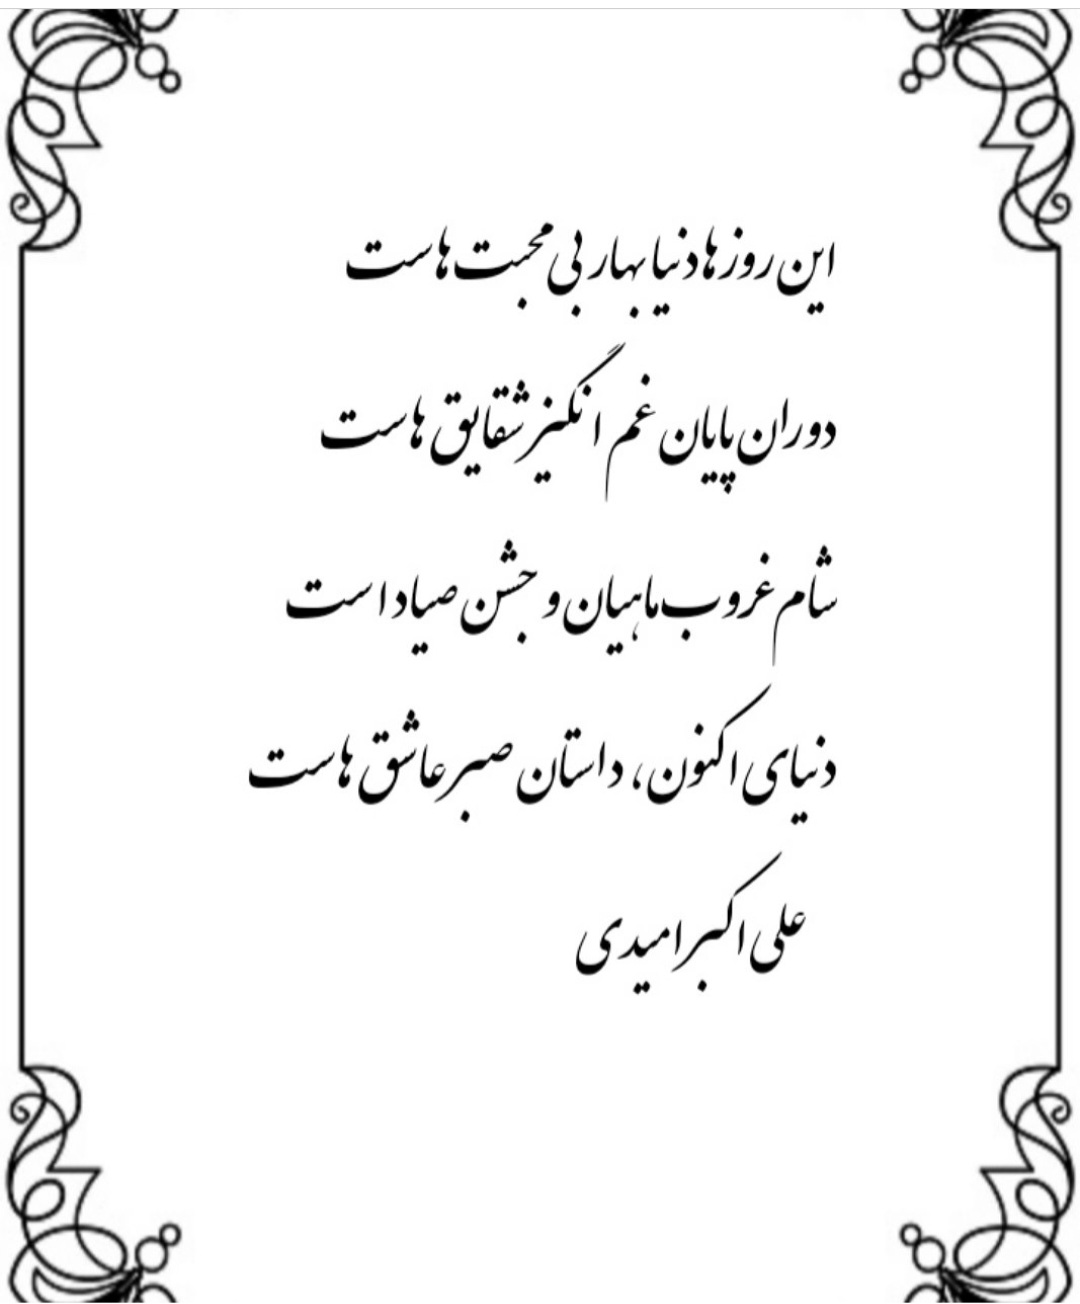 این روزها دنیا بهار بی محبت هاست
دوران پایان غم انگیز شقایق هاست
شام غروب ماهیان و جشن صیاد است
دنیای اکنون، داستان صبر عاشق هاست
علی اکبر امیدی